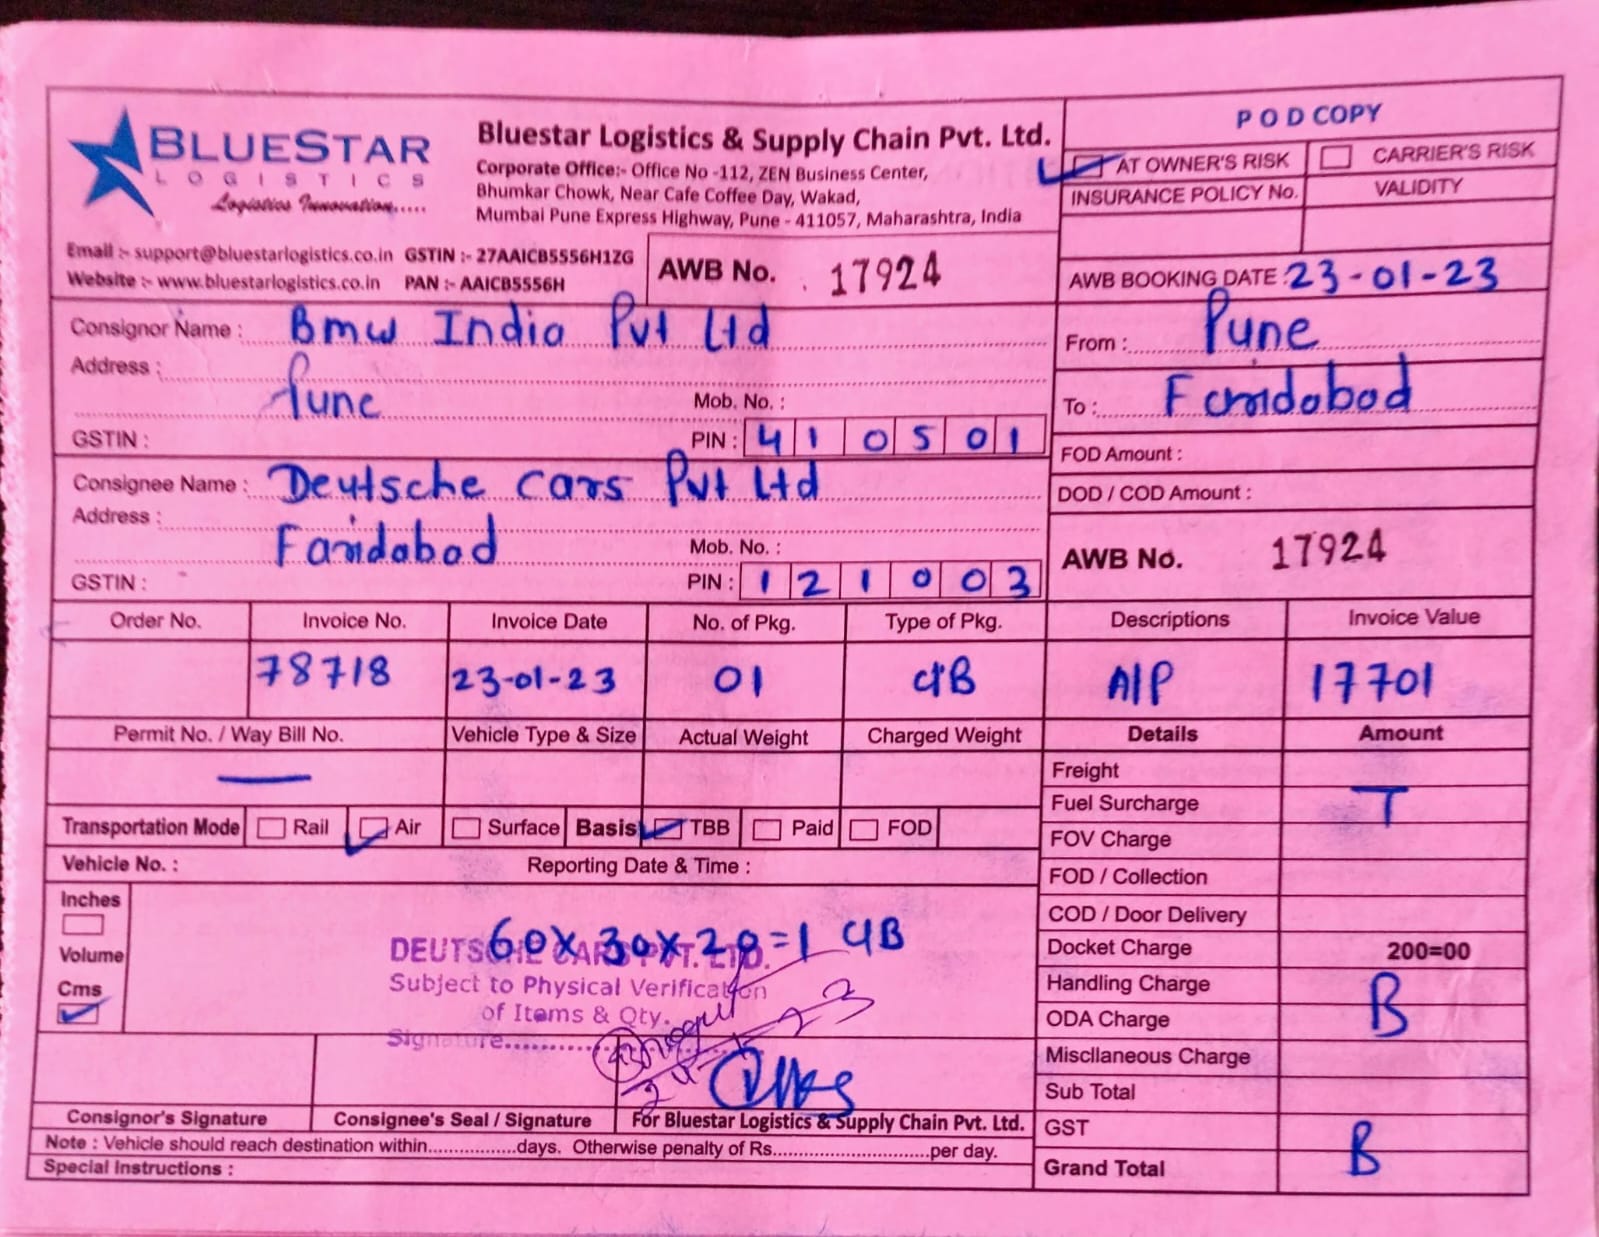 BLUESTAR
LOGISTICS
Logistics Innovation.....
Bluestar Logistics & Supply Chain Pvt. Ltd.
Corporate Office:- Office No -112, ZEN Business Center,
Bhumkar Chowk, Near Cafe Coffee Day, Wakad,
Mumbai Pune Express Highway, Pune - 411057, Maharashtra, India
POD COPY
AT OWNER'S RISK CARRIER'S RISK
INSURANCE POLICY No. VALIDITY
Email :- support@bluestarlogistics.co.in GSTIN :- 27AAICB5556H1ZG
Website :- www.bluestarlogistics.co.in PAN :- AAICB5556H
AWB No. 17924
AWB BOOKING DATE : 23-01-23
Consignor Name : Bmw India Pvt Ltd
Address :
Pune Mob. No. :
GSTIN : PIN : 410501
From : Pune
To : Faridabad
FOD Amount :
DOD / COD Amount :
Consignee Name : Deutsche Cars Pvt Ltd
Address :
Faridabad Mob. No. :
GSTIN : PIN : 121003
AWB No. 17924
Order No. Invoice No. Invoice Date No. of Pkg. Type of Pkg. Descriptions Invoice Value
78718 23-01-23 01 C/B A/P 17701
Permit No. / Way Bill No. Vehicle Type & Size Actual Weight Charged Weight Details Amount
—
Freight
Fuel Surcharge T
FOV Charge
FOD / Collection
COD / Door Delivery
Docket Charge 200=00
Handling Charge B
ODA Charge
Miscllaneous Charge
Sub Total
GST
Grand Total B
Transportation Mode Rail Air Surface Basis TBB Paid FOD
Vehicle No. : Reporting Date & Time :
Inches
Volume
Cms
60x30x20=1 C/B
DEUTSCHE CARS PVT. LTD.
Subject to Physical Verification
of Items & Qty.
Signature............
Consignor's Signature Consignee's Seal / Signature For Bluestar Logistics & Supply Chain Pvt. Ltd.
Note : Vehicle should reach destination within.................days. Otherwise penalty of Rs..............................per day.
Special Instructions :